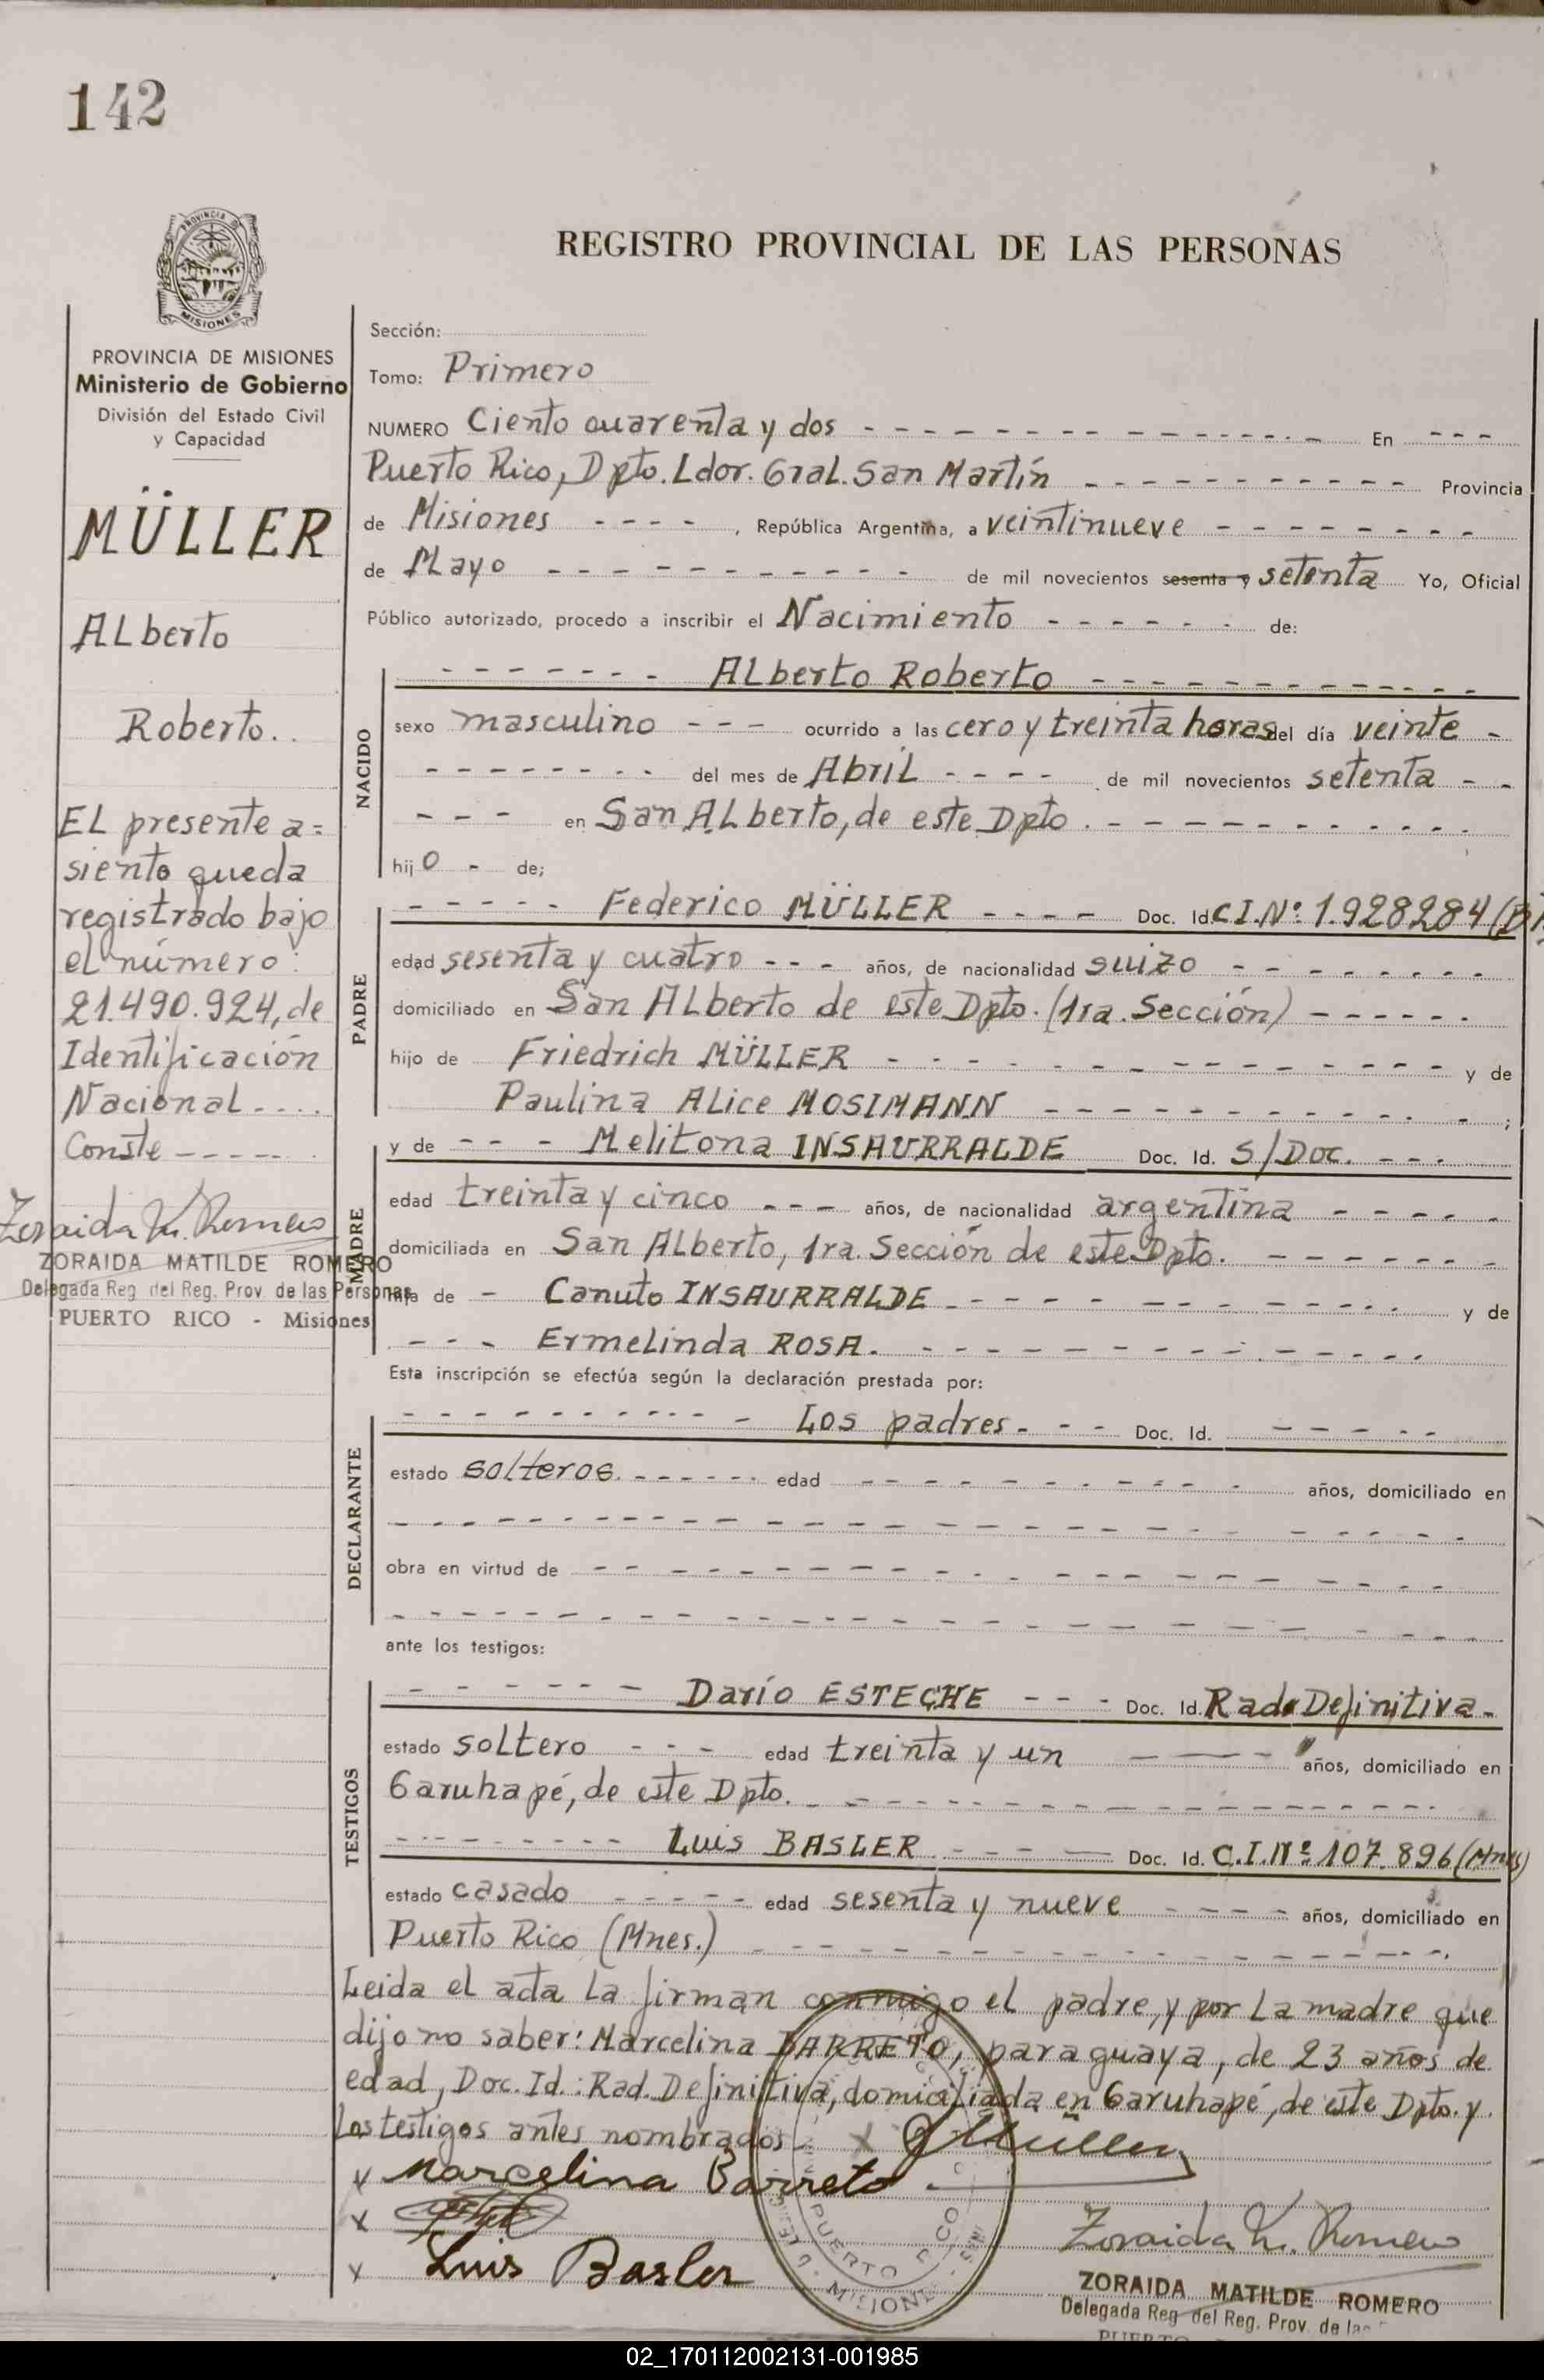 142
PROVINCIA DE MISIONES
Ministerio de Gobierno
División del Estado Civil
y Capacidad
MÜLLER
Alberto
Roberto..
El presente a=
siento queda
registrado bajo
el número:
21.490.924, de
Identificación
Nacional....
Conste -----
Zoraida M. Romero
ZORAIDA MATILDE ROMERO
Delegada Reg. del Reg. Prov. de las Personas
PUERTO RICO - Misiones
REGISTRO PROVINCIAL DE LAS PERSONAS
Sección:
Tomo: Primero
NUMERO Ciento cuarenta y dos - - - En - - -
Puerto Rico, Dpto. Ldor. Gral. San Martín - - - Provincia
de Misiones - - - -, República Argentina, a veintinueve - - -
de Mayo - - - de mil novecientos sesenta y setenta Yo, Oficial
Público autorizado, procedo a inscribir el Nacimiento - - - de:
NACIDO
- - - Alberto Roberto - - -
sexo masculino - - - ocurrido a las cero y treinta horas del día veinte -
- - - del mes de Abril - - - - de mil novecientos setenta - -
- - - en San Alberto, de este Dpto. - - -
hijo - de;
PADRE
- - - Federico MÜLLER - - - - Doc. Id. C.I.Nº 1.928284
edad sesenta y cuatro - - - años, de nacionalidad suizo - - -
domiciliado en San Alberto de este Dpto. (1ra. Sección) - - -
hijo de Friedrich MÜLLER - - - y de
Paulina Alice MOSIMANN - - - ;
MADRE
y de - - - Melitona INSAURRALDE Doc. Id. S/Doc. - - -
edad treinta y cinco - - - años, de nacionalidad argentina - - -
domiciliada en San Alberto, 1ra. Sección de este Dpto. - - -
hija de - Canuto INSAURRALDE - - - y de
- - - Ermelinda ROSA. - - -
Esta inscripción se efectúa según la declaración prestada por:
DECLARANTE
- - - Los padres. - - Doc. Id. - - -
estado solteros. - - - edad - - - años, domiciliado en
- - -
obra en virtud de - - -
- - -
ante los testigos:
TESTIGOS
- - - Darío ESTECHE - - - Doc. Id. Rad. Definitiva -
estado soltero - - - edad treinta y un - - - años, domiciliado en
Garuhapé, de este Dpto. - - -
- - - Luis BASLER - - - Doc. Id. C.I.Nº 107.896 (Mnes)
estado casado - - - edad sesenta y nueve - - - años, domiciliado en
Puerto Rico (Mnes.) - - -
Leida el acta la firman conmigo el padre, y por la madre que
dijo no saber: Marcelina BARRETO, paraguaya, de 23 años de
edad, Doc. Id.: Rad. Definitiva, domiciliada en Garuhapé, de este Dpto. y
los testigos antes nombrados
x Müller
x Marcelina Barreto
x
x Luis Basler
PUERTO RICO
MISIONES
Zoraida M. Romero
ZORAIDA MATILDE ROMERO
Delegada Reg. del Reg. Prov. de las
02_170112002131-001985